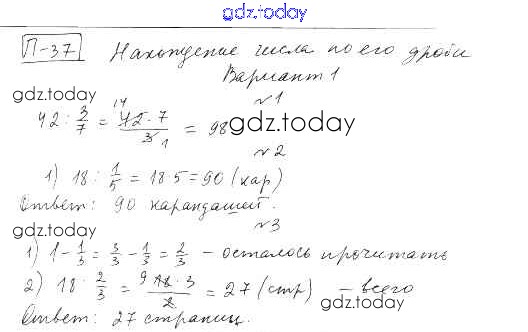 gdz.today
П-37 Нахождение числа по его дроби
Вариант 1
gdz.today
№1
42 : 3/7 = 42·7/3 = 98
14
1
gdz.today
№2
1) 18 : 1/5 = 18·5 = 90 (кар)
Ответ: 90 карандашей.
gdz.today
№3
1) 1 - 1/3 = 3/3 - 1/3 = 2/3 - осталось прочитать
2) 18 : 2/3 = 9 18·3/2 = 27 (стр) - всего
gdz.today
Ответ: 27 страниц.